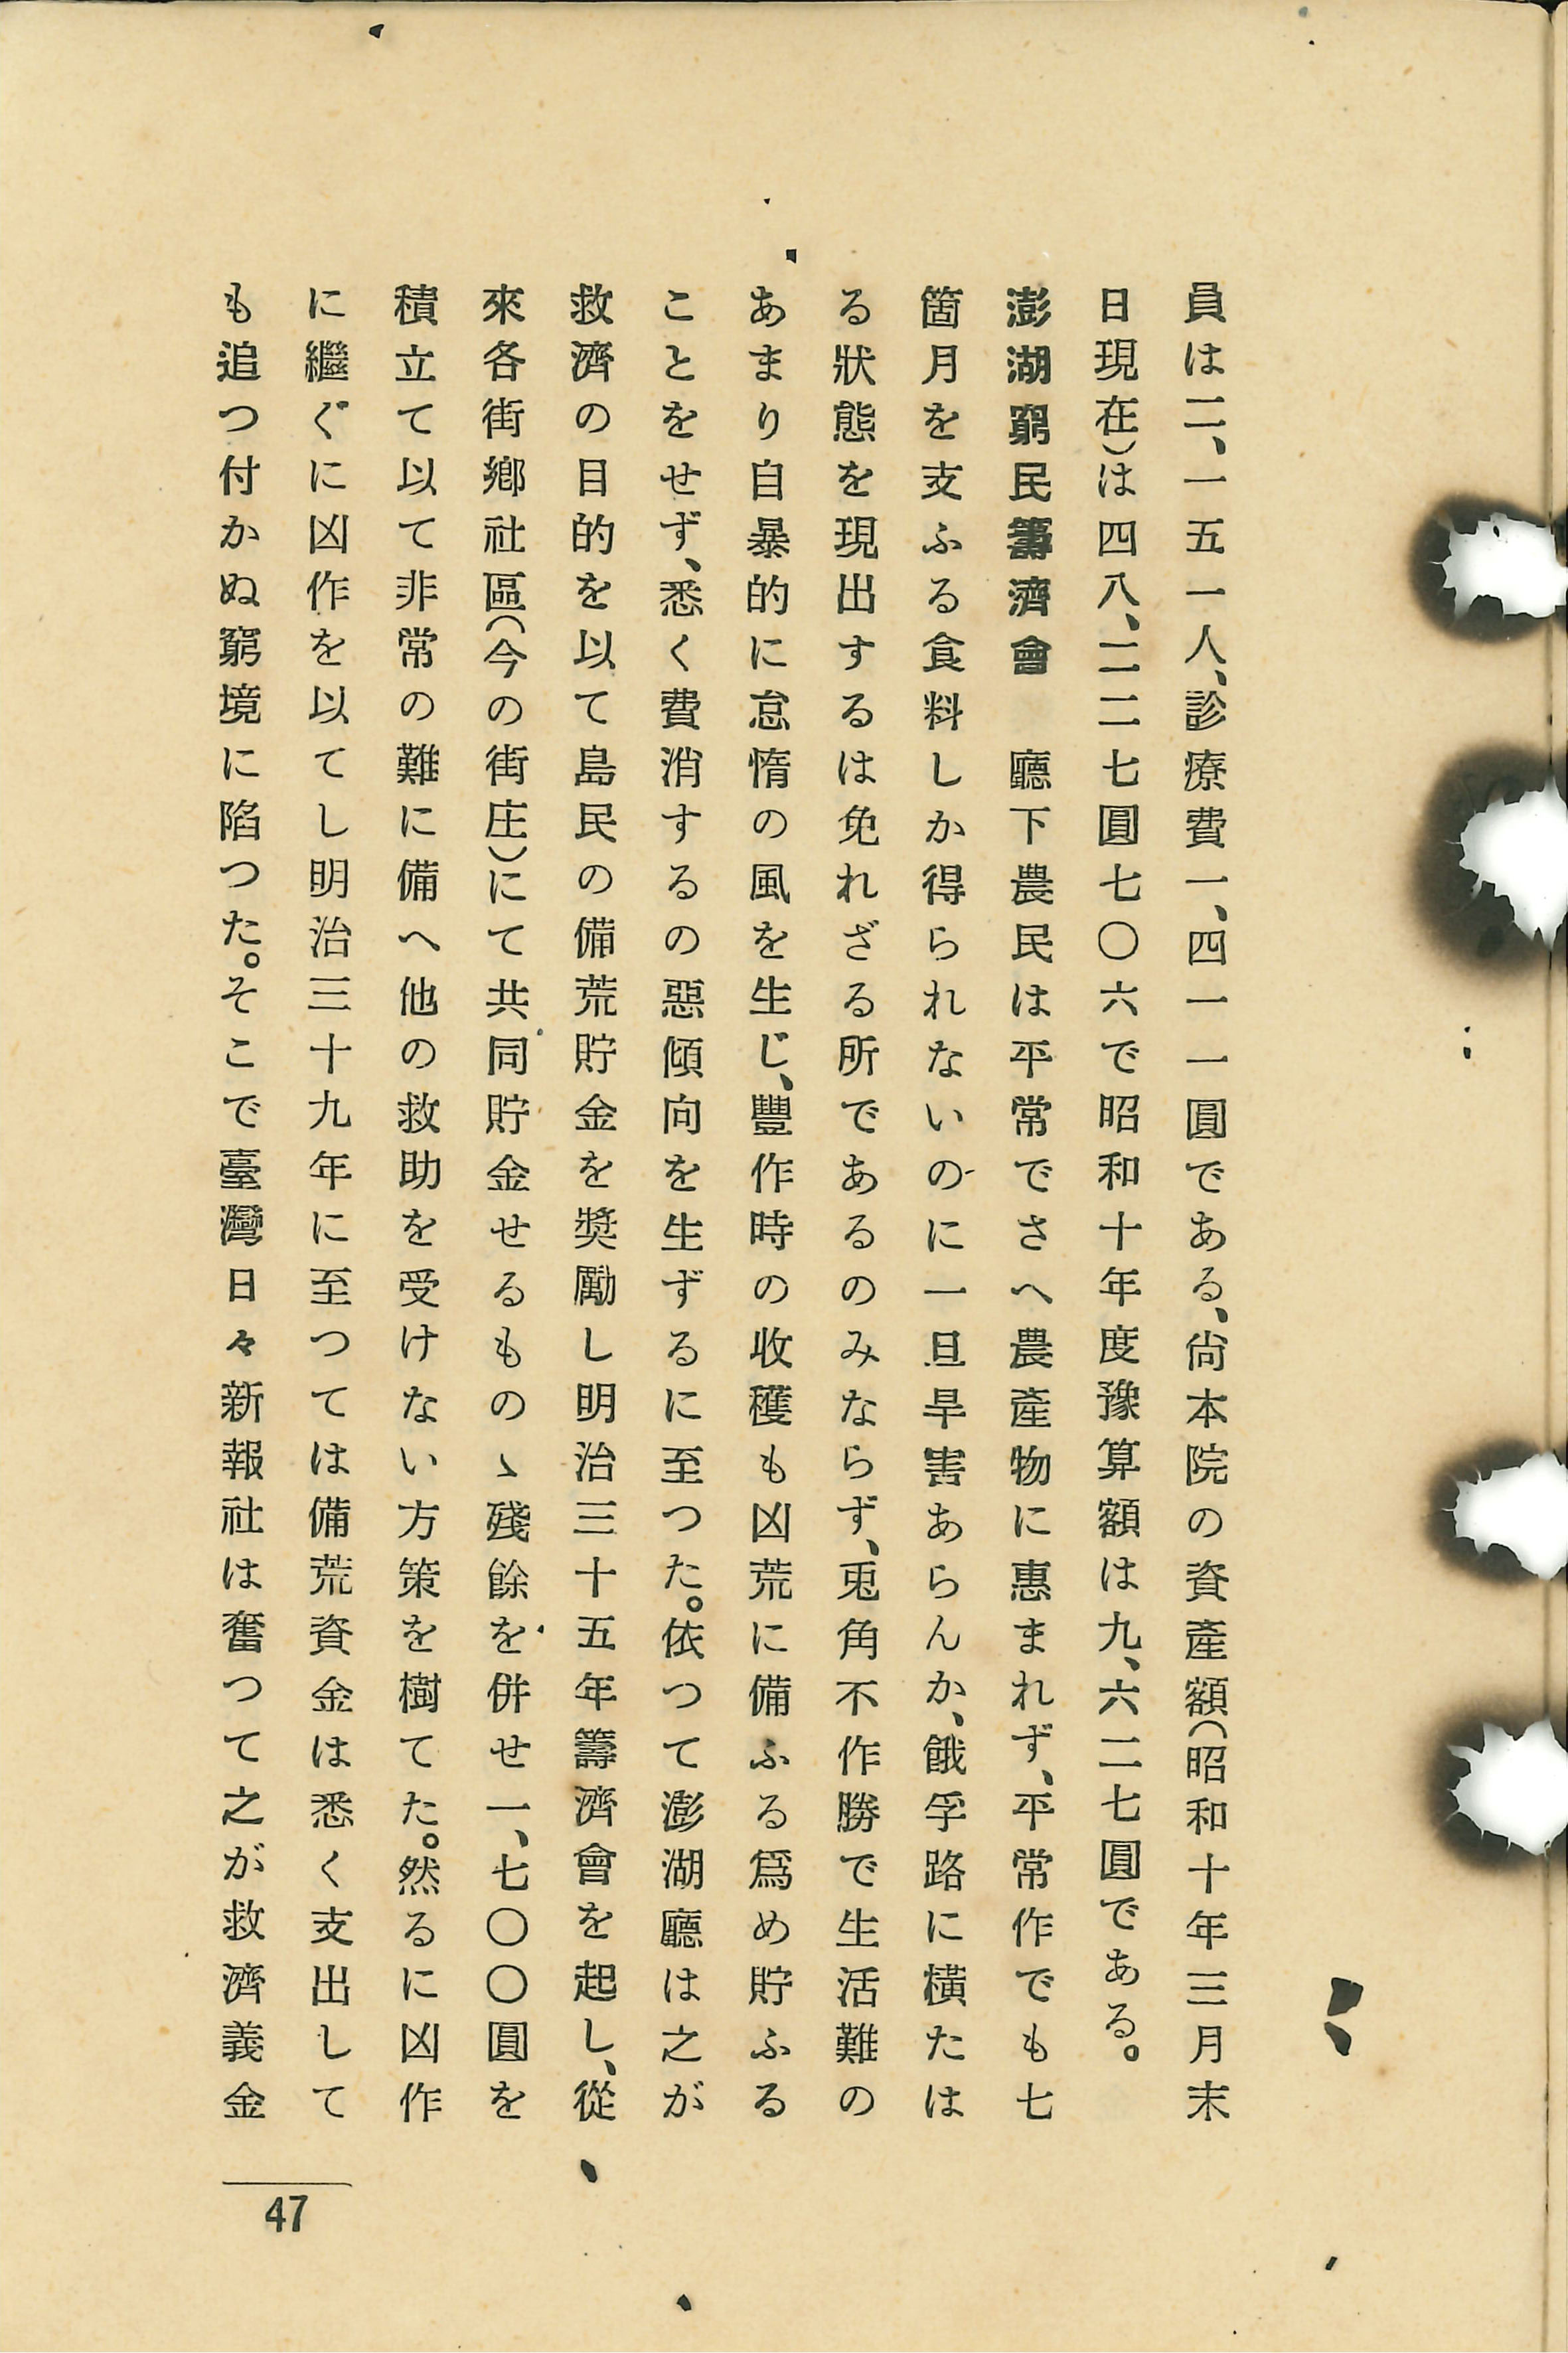 員は二、一五一人、診療費一、四一一圓である、尙本院の資產額(昭和十年三月末
日現在)は四八、二二七圓七〇六で昭和十年度豫算額は九、六二七圓である。
澎湖窮民籌濟會　廳下農民は平常でさへ農產物に惠まれず、平常作でも七
箇月を支ふる食料しか得られないのに一旦旱害あらんか、餓孚路に橫たは
る狀態を現出するは免れざる所であるのみならず、兎角不作勝で生活難の
あまり自暴的に怠惰の風を生じ、豐作時の收穫も凶荒に備ふる爲め貯ふる
ことをせず、悉く費消するの惡傾向を生ずるに至つた。依つて澎湖廳は之が
救濟の目的を以て島民の備荒貯金を奬勵し明治三十五年籌濟會を起し、從
來各街鄕社區(今の街庄)にて共同貯金せるものゝ殘餘を併せ一、七〇〇圓を
積立て以て非常の難に備へ他の救助を受けない方策を樹てた。然るに凶作
に繼ぐに凶作を以てし明治三十九年に至つては備荒資金は悉く支出して
も追つ付かぬ窮境に陷つた。そこで臺灣日々新報社は奮つて之が救濟義金
47